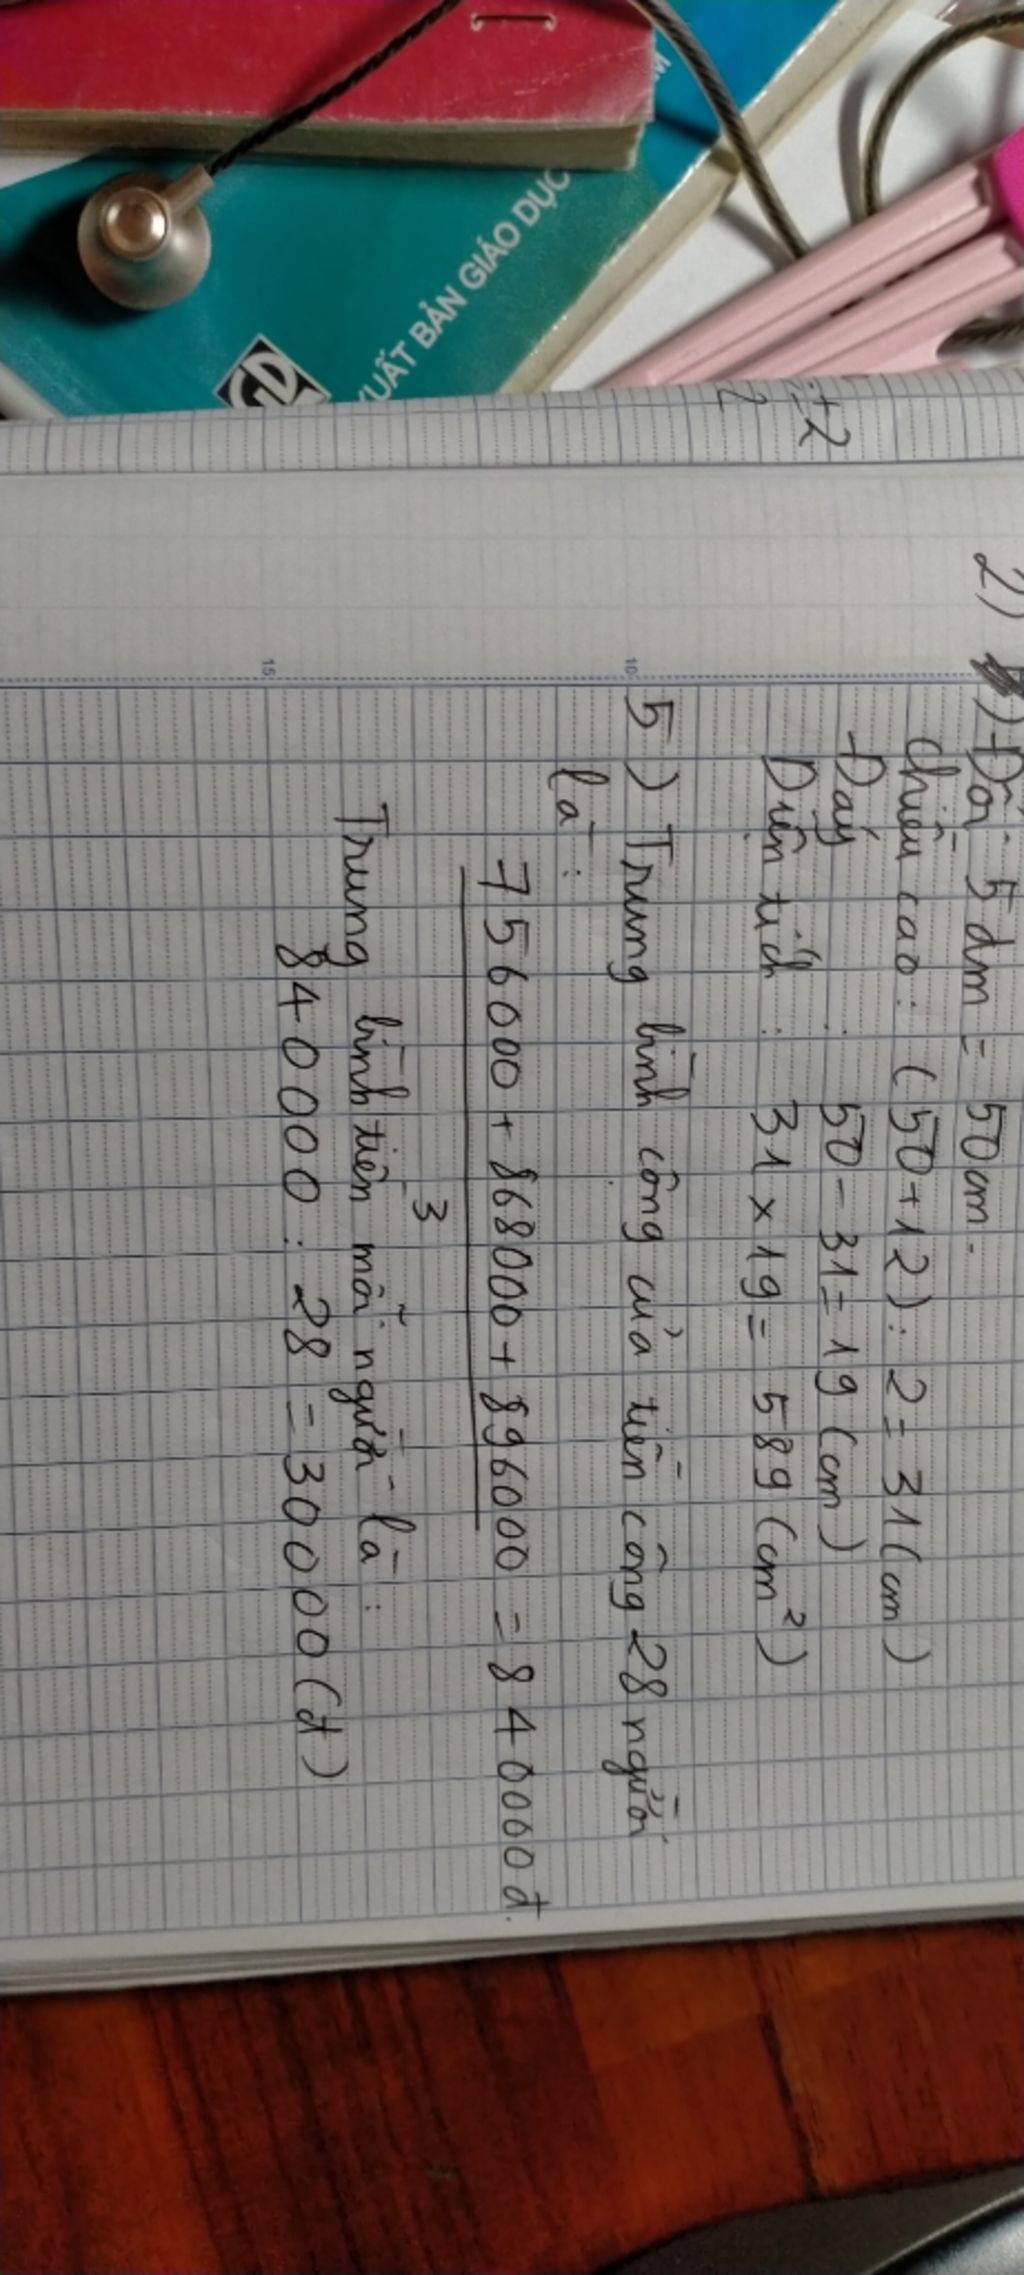 XUẤT BẢN GIÁO DỤC
GD
±2
2
2) Đổi: 5dm = 50cm.
Chiều cao: (50+12): 2 = 31(cm)
Đáy : 50 - 31 = 19 (cm)
Diện tích : 31 × 19 = 589 (cm²)
10
5) Trung bình công của tiền công 28 người
là:
756000 + 868000 + 896000 = 840000đ.
3
Trung bình tiền mỗi người là:
15
840000 : 28 = 30000 (đ)